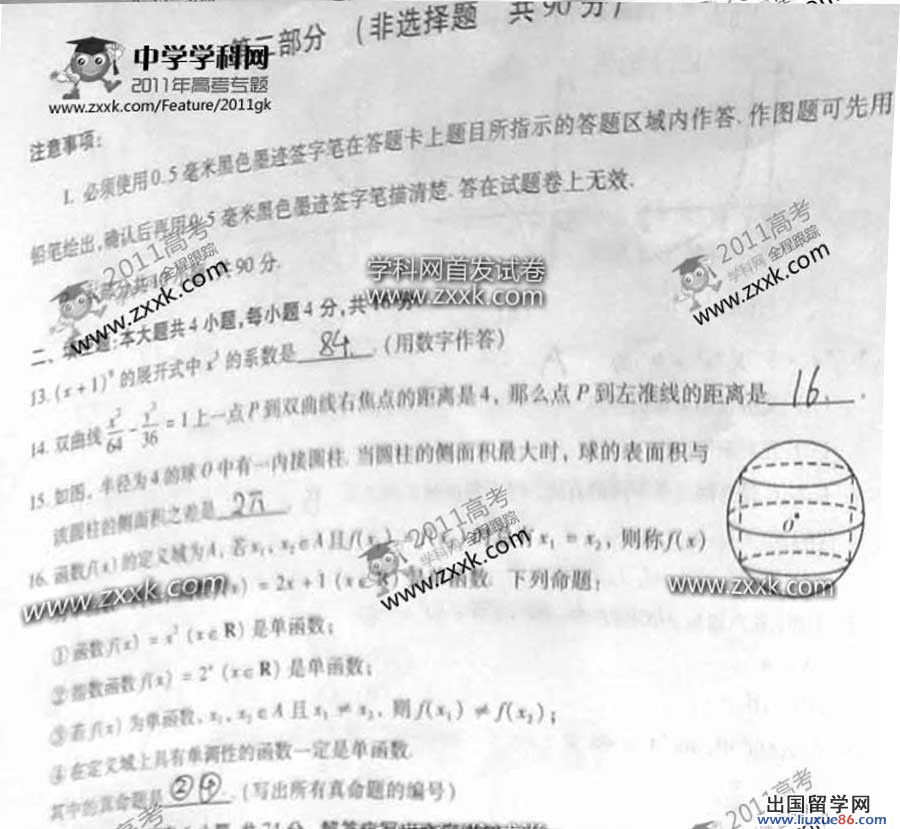 第二部分 (非选择题 共90分)
中学学科网
2011年高考专题
www.zxxk.com/Feature/2011gk
注意事项:
1. 必须使用0.5毫米黑色墨迹签字笔在答题卡上题目所指示的答题区域内作答. 作图题可先用
铅笔绘出,确认后再用0.5毫米黑色墨迹签字笔描清楚. 答在试题卷上无效.
共90分.
2011高考
全程跟踪
www.zxxk.com
学科网首发试卷
www.zxxk.com
2011高考
学科网 全程跟踪
www.zxxk.com
二、填空题:本大题共4小题,每小题4分,共16分
13. (x+1)⁹的展开式中x³的系数是 84 . (用数字作答)
14. 双曲线x²/64-y²/36=1上一点P到双曲线右焦点的距离是4, 那么点P到左准线的距离是 16 .
15. 如图, 半径为4的球O中有一内接圆柱. 当圆柱的侧面积最大时, 球的表面积与
该圆柱的侧面积之差是 .
O
16. 函数f(x)的定义域为A, 若x₁、x₂∈A且 x₁ = x₂, 则称f(x)
= 2x+1 (x∈R) 函数. 下列命题:
2011高考
学科网 全程跟踪
www.zxxk.com
www.zxxk.com
www.zxxk.com
①函数f(x) = x² (x∈R) 是单函数;
②指数函数f(x) = 2ˣ (x∈R) 是单函数;
③若f(x)为单函数, x₁、x₂∈A且x₁ ≠ x₂, 则f(x₁) ≠ f(x₂);
④在定义域上具有单调性的函数一定是单函数.
其中的真命题是 ②④ . (写出所有真命题的编号)
共74分. 解答应写出
2011高考
出国留学网
www.liuxue86.com